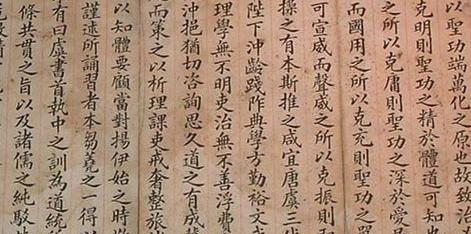 以聖功端萬化之原也故致治
克明則聖功之精於體道可知也
之所以克庸則聖功之深於愛
而國用之所以克充則聖功之
可宣威而聲威之所以克振則
操之有本斯推之咸宜唐虞三
陛下沖齡踐阼典學方勤裕文
理學無不明吏治無不善浮費
沖挹猶切咨詢思久道之有成
而策之以析理課吏戒奢整旅
以知體要顧當對揚伊始之時
謹述所誦習者本芻蕘之一得以
有曰虞書首執中之訓為道統
條共貫之旨以及諸儒之純駁